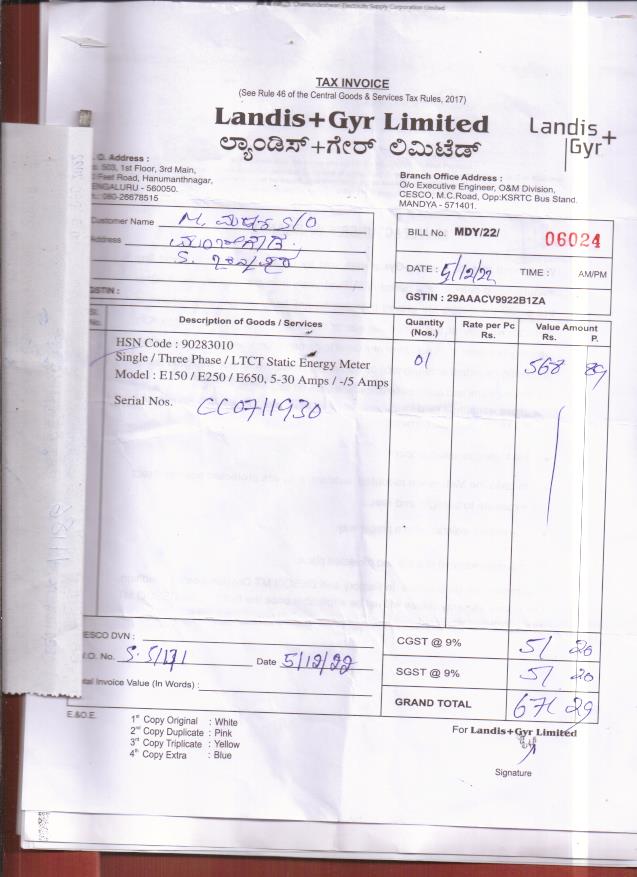 Chamundeshwari Electricity Supply Corporation Limited
TAX INVOICE
(See Rule 46 of the Central Goods & Services Tax Rules, 2017)
Landis+Gyr Limited
ಲ್ಯಾಂಡಿಸ್+ಗೇರ್ ಲಿಮಿಟೆಡ್
Landis+
Gyr
O. Address :
503, 1st Floor, 3rd Main,
Feet Road, Hanumanthnagar,
ENGALURU - 560050.
080-26678515
Branch Office Address :
O/o Executive Engineer, O&M Division,
CESCO, M.C.Road, Opp:KSRTC Bus Stand.
MANDYA - 571401.
Customer Name M. S/O
Address
S.
GSTIN :
BILL No. MDY/22/ 06024
DATE : 5/12/22 TIME : AM/PM
GSTIN : 29AAACV9922B1ZA
No. Description of Goods / Services Quantity (Nos.) Rate per Pc Rs. Value Amount Rs. P.
HSN Code : 90283010
Single / Three Phase / LTCT Static Energy Meter 01 568 89
Model : E150 / E250 / E650, 5-30 Amps / -/5 Amps
Serial Nos. CC0711930
ESCO DVN :
.O. No. S-5/171 Date 5/12/22
tal Invoice Value (In Words) :
CGST @ 9% 51 20
SGST @ 9% 51 20
GRAND TOTAL 671 29
E.&O.E.
1st Copy Original : White
2nd Copy Duplicate : Pink
3rd Copy Triplicate : Yellow
4th Copy Extra : Blue
For Landis+Gyr Limited
Signature